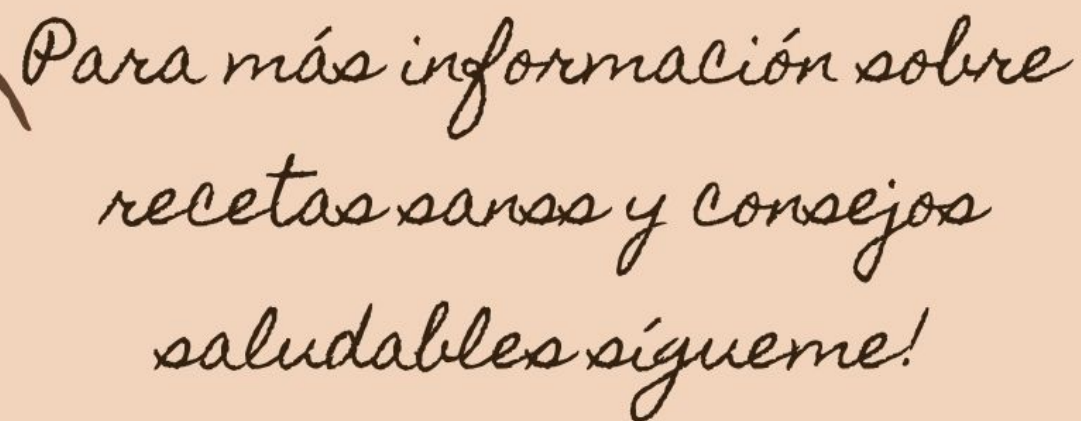 Para más información sobre
recetas sanss y consejos
saludables sígueme!